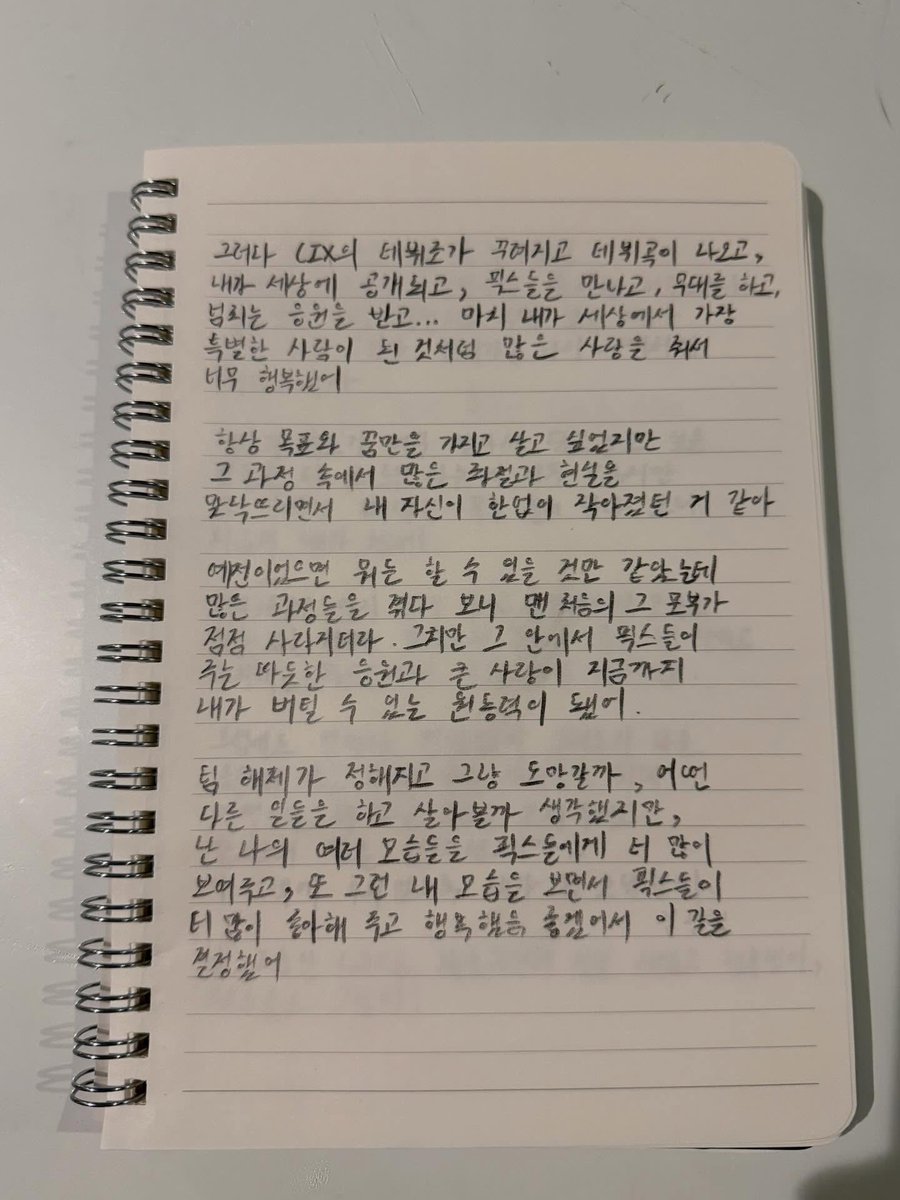 그러다 CIX의 데뷔조가 꾸려지고 데뷔곡이 나오고,
내가 세상에 공개되고, 픽스들을 만나고, 무대를 하고,
넘치는 응원을 받고... 마치 내가 세상에서 가장
특별한 사람이 된 것처럼 많은 사랑을 줘서
너무 행복했어
항상 목표와 꿈만을 가지고 살고 싶었지만
그 과정 속에서 많은 좌절과 현실을
맞닥뜨리면서 내 자신이 한없이 작아졌던 거 같아
예전이었으면 뭐든 할 수 있을 것만 같았는데
많은 과정들을 겪다 보니 맨 처음의 그 포부가
점점 사라지더라. 그치만 그 안에서 픽스들이
주는 따듯한 응원과 큰 사랑이 지금까지
내가 버틸 수 있는 원동력이 됐어.
팀 해체가 정해지고 그냥 도망갈까, 어떤
다른 일들을 하고 살아볼까 생각했지만,
난 나의 여러 모습들을 픽스들에게 더 많이
보여주고, 또 그런 내 모습을 보면서 픽스들이
더 많이 좋아해 주고 행복했음 좋겠어서 이 길을
결정했어